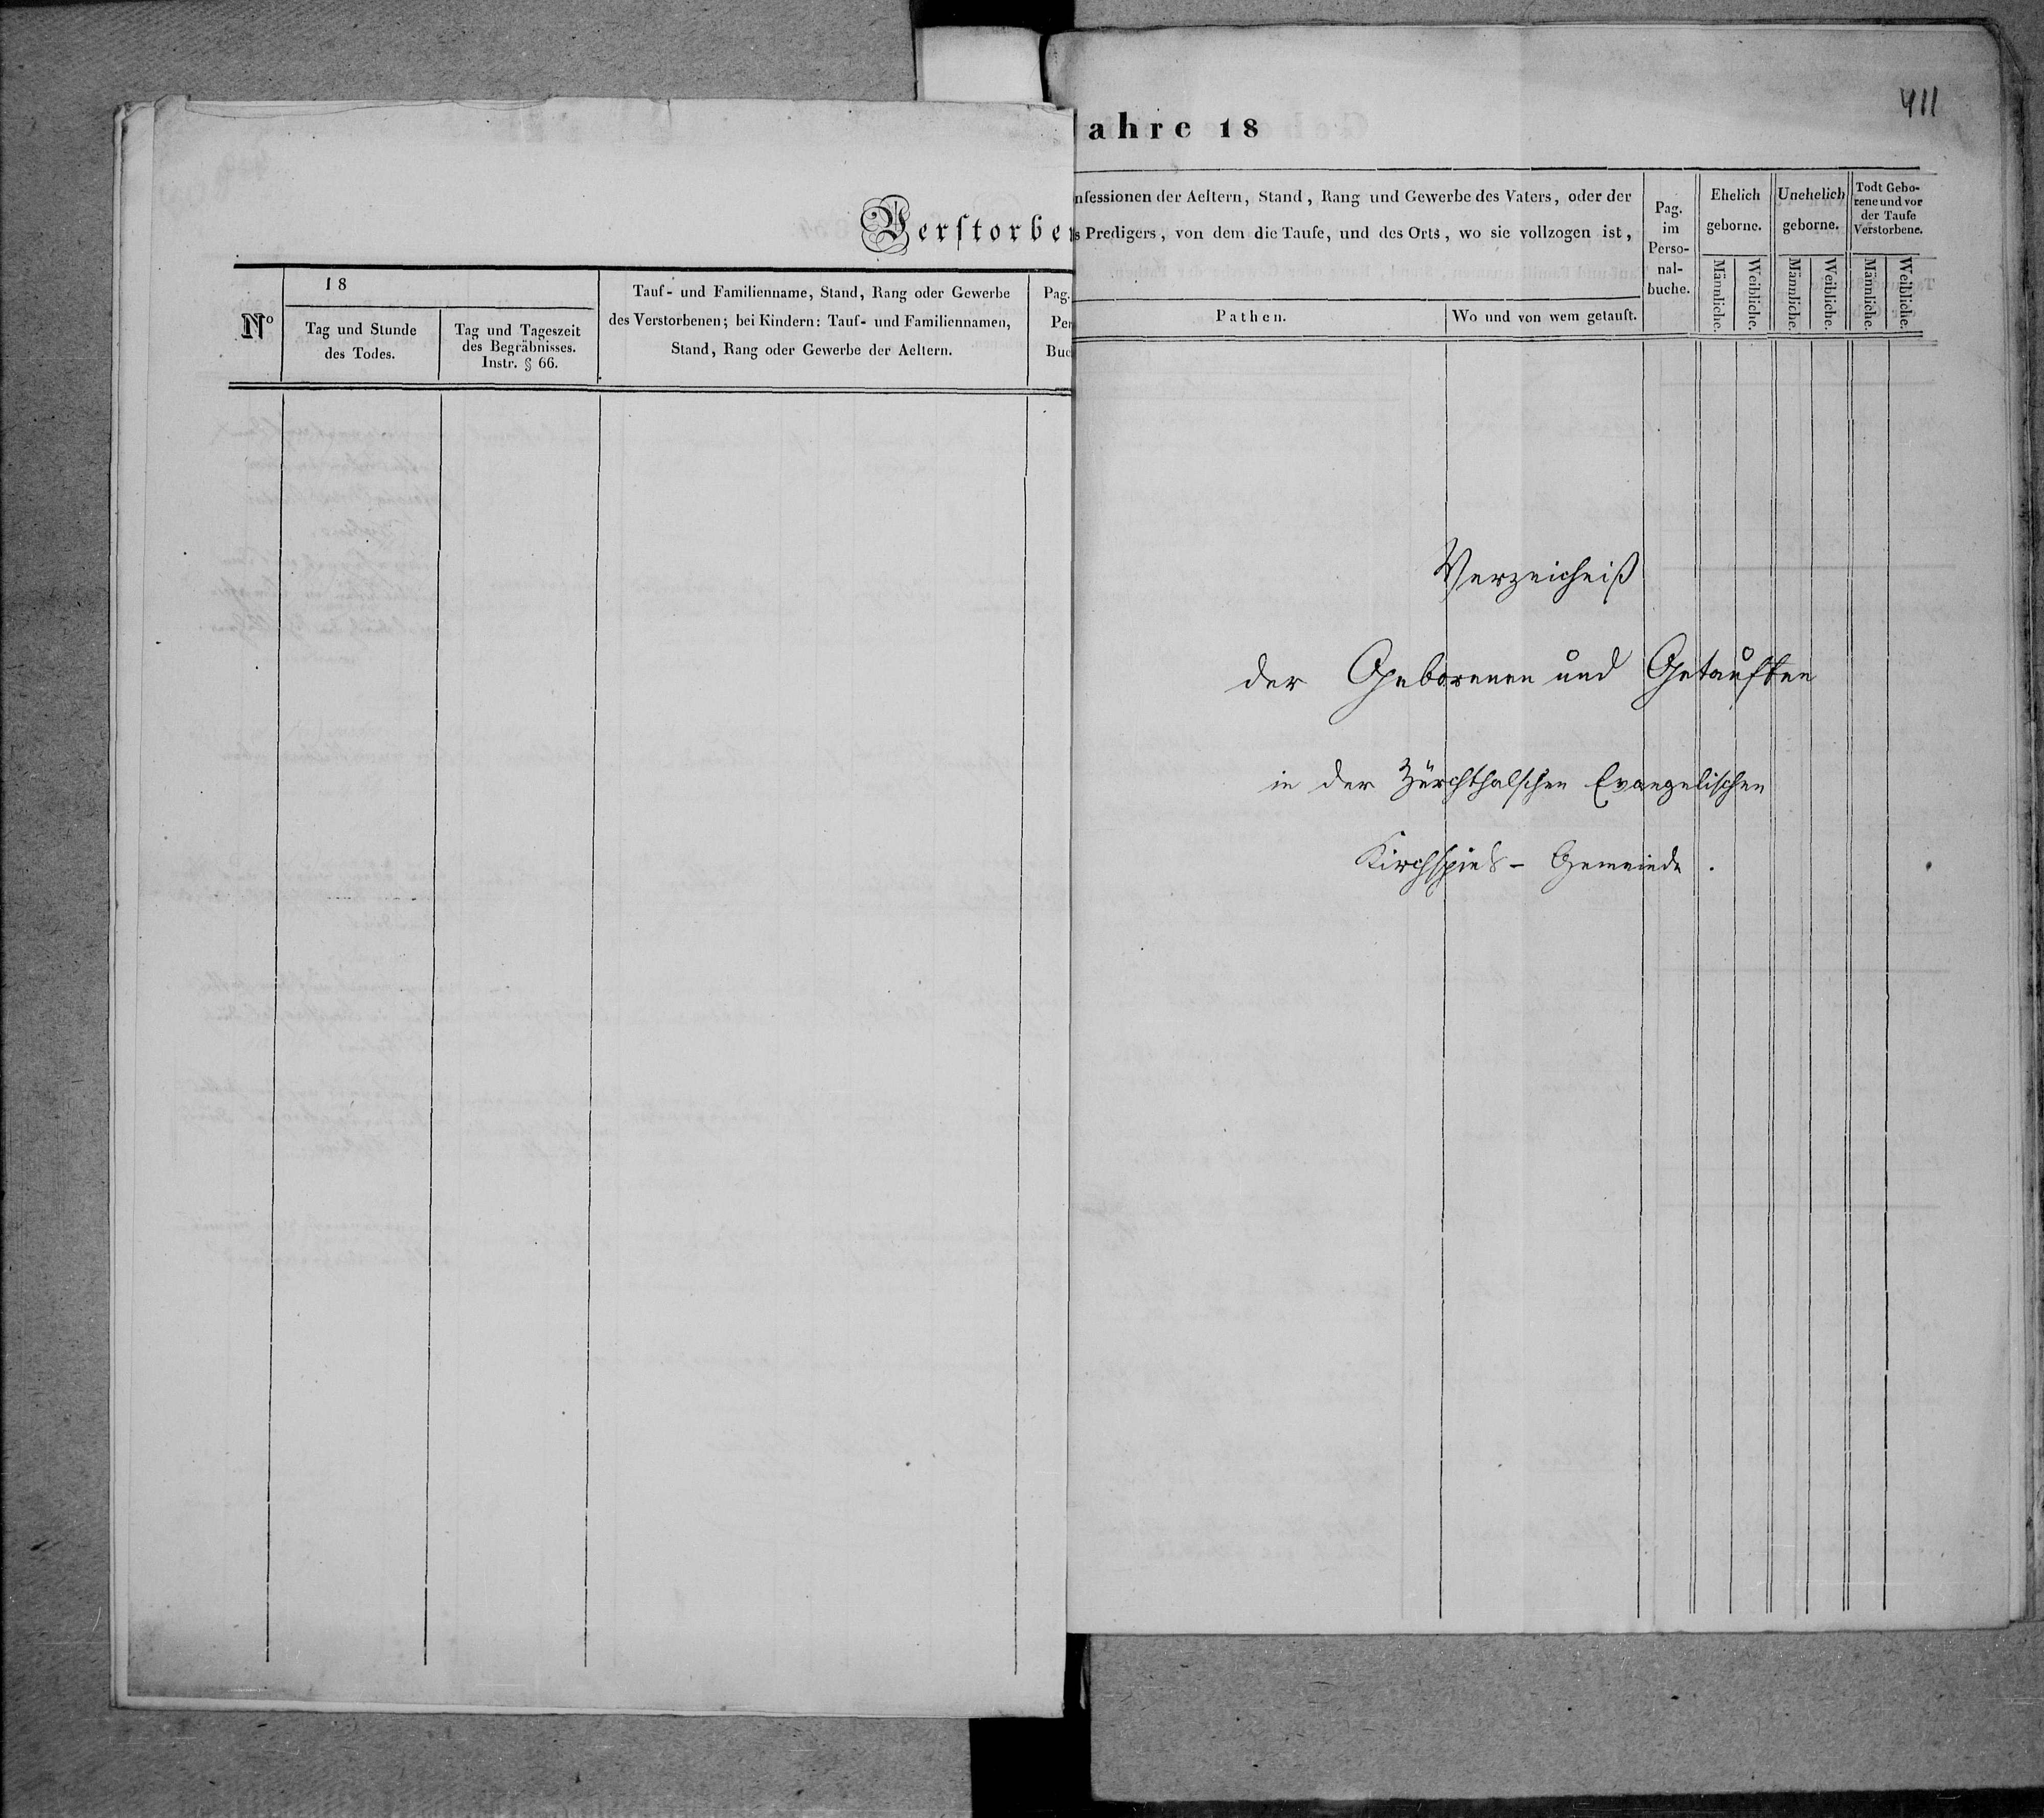 Verstorbe
No
18
Tag und Stunde
des Todes.
Tag und Tageszeit
des Begräbnisses.
Instr. § 66.
Tauf- und Familienname, Stand, Rang oder Gewerbe
des Verstorbenen; bei Kindern: Tauf- und Familiennamen,
Stand, Rang oder Gewerbe der Aeltern.
Pag.
Per
Buc
411
ahre 18
nfessionen der Aeltern, Stand, Rang und Gewerbe des Vaters, oder der
s Predigers, von dem die Taufe, und des Orts, wo sie vollzogen ist,
Pathen.
Wo und von wem getauft.
Pag.
im
Perso-
nal-
buche.
Ehelich
geborne.
Männliche.
Weibliche.
Unehelich
geborne.
Männliche.
Weibliche.
Todt Gebo-
rene und vor
der Taufe
Verstorbene.
Männliche.
Weibliche.
Verzeichniß
der Geborenen und Getauften
in der Zürchthalschen Evangelischen
Kirchspiels - Gemeinde.